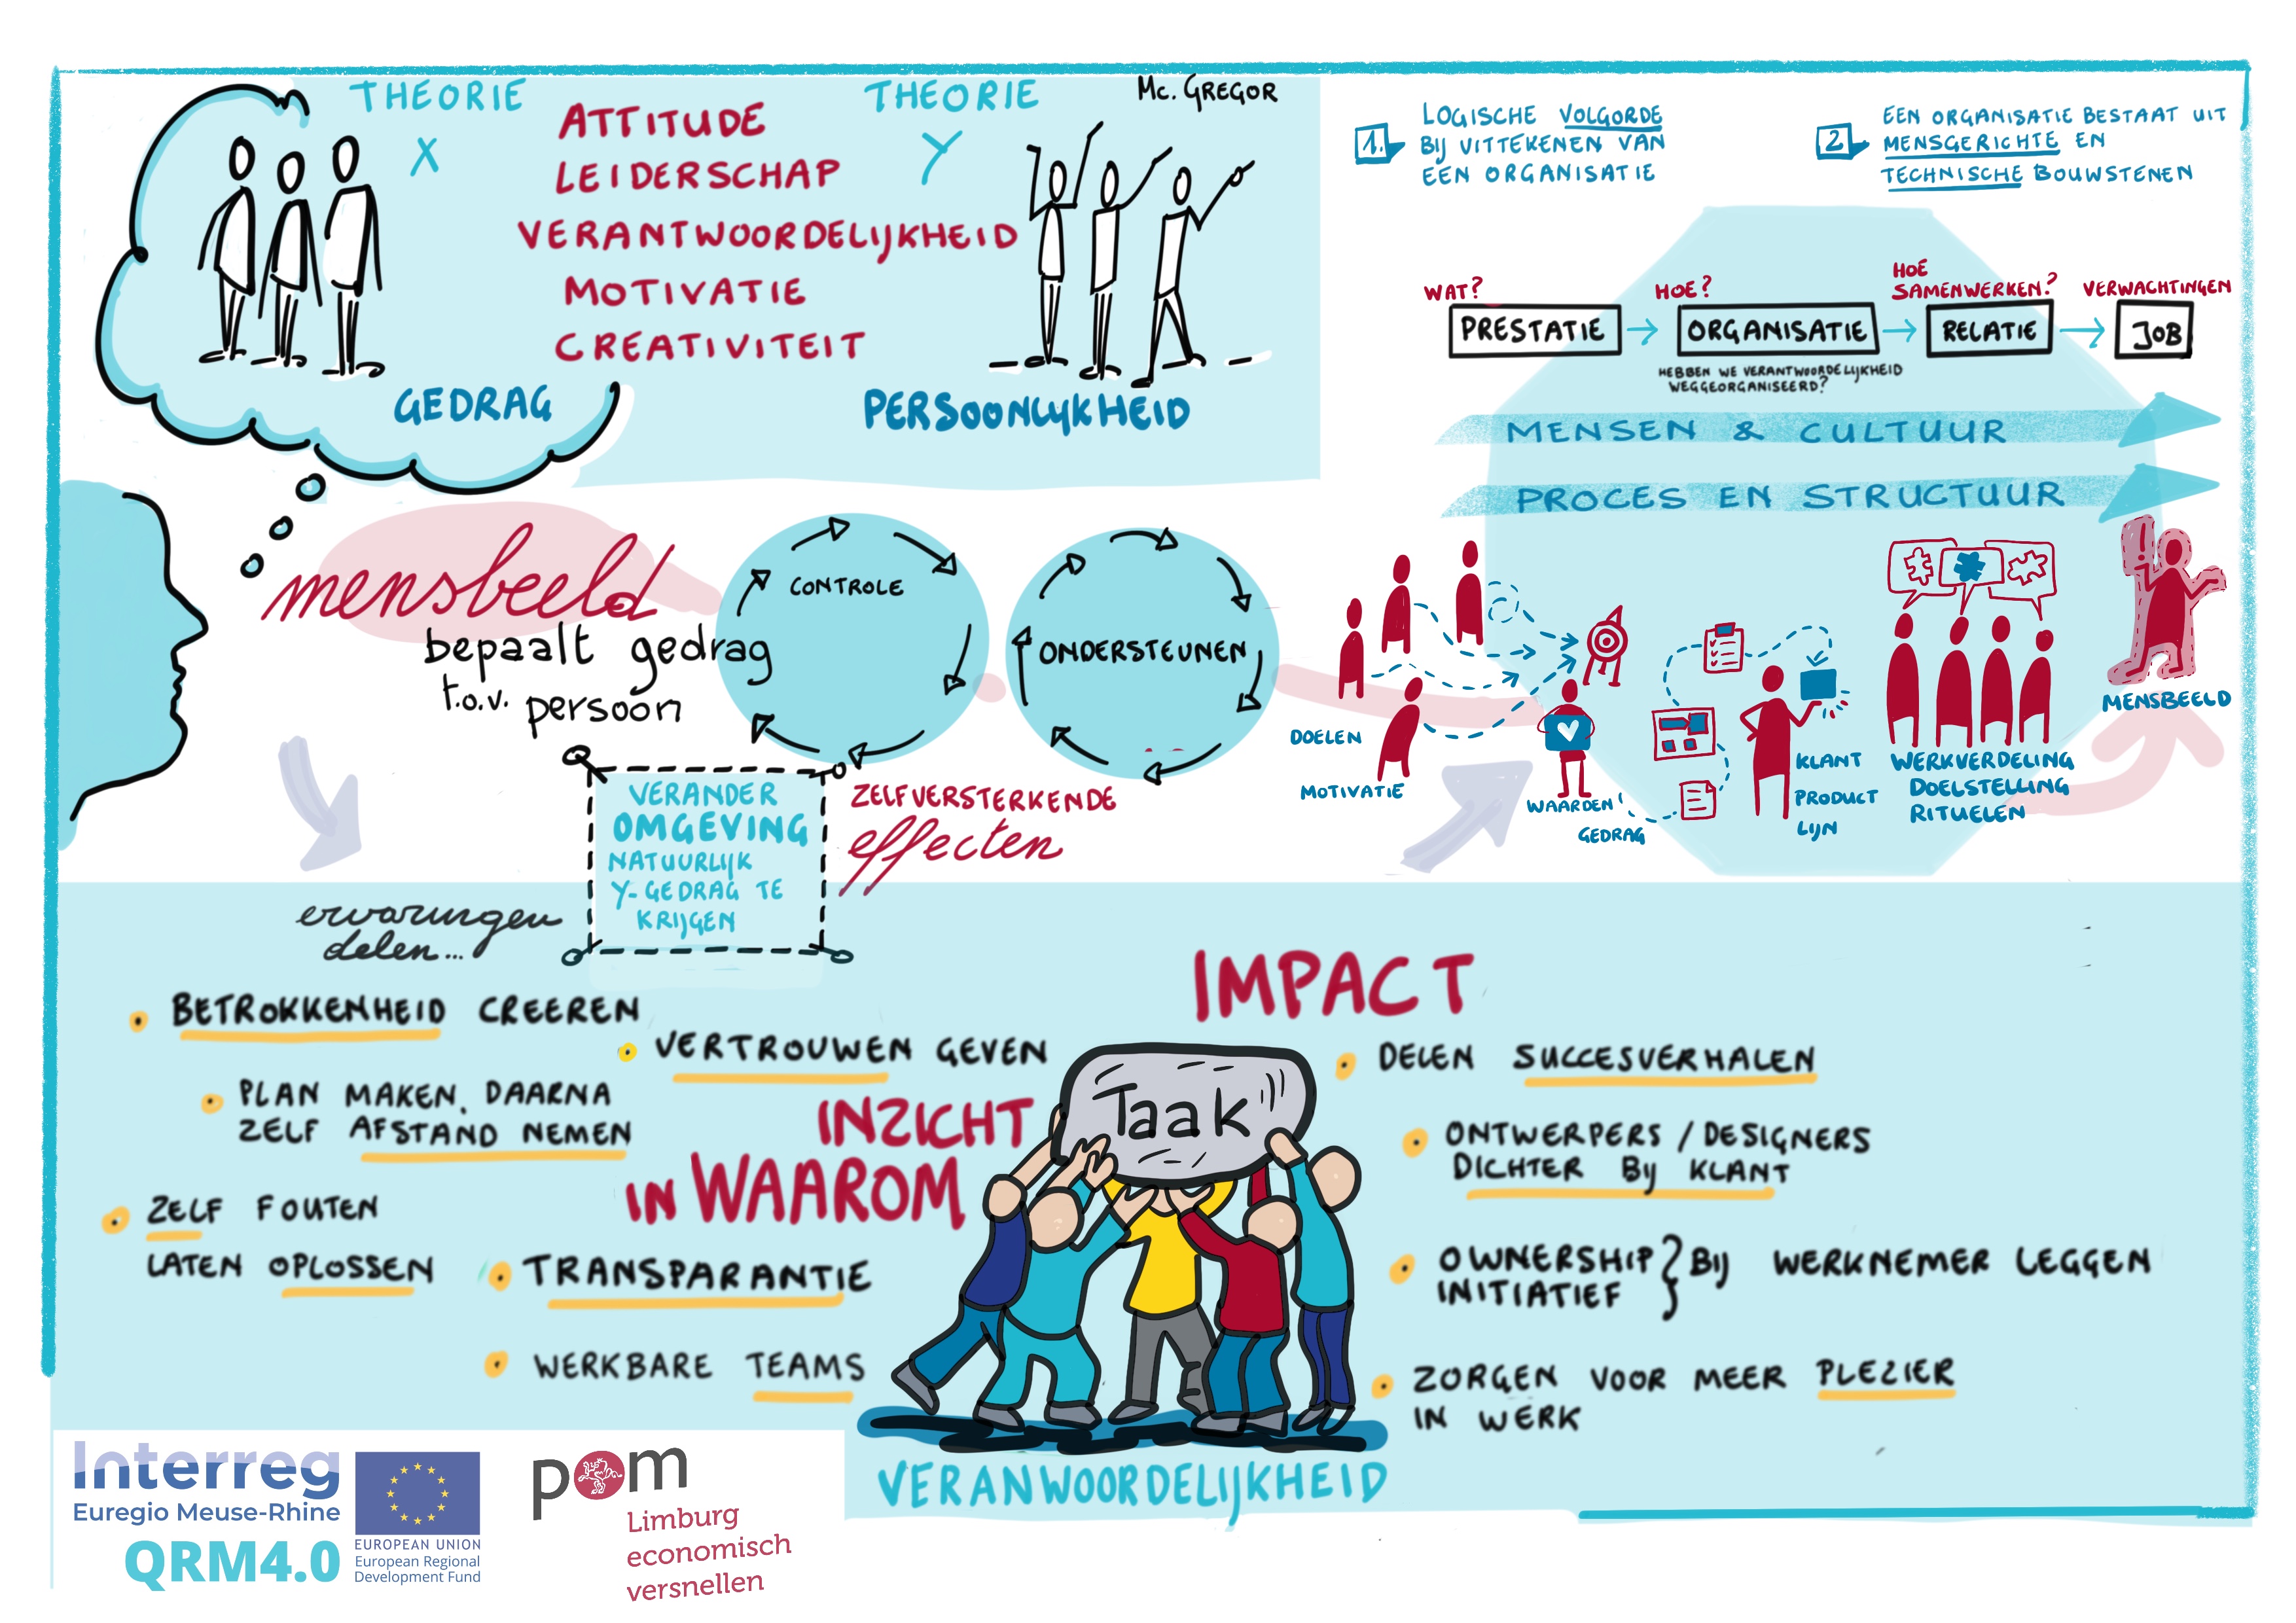 THEORIE
X
ATTITUDE
LEIDERSCHAP
VERANTWOORDELIJKHEID
MOTIVATIE
CREATIVITEIT
THEORIE
Y
Mc. GREGOR
GEDRAG
PERSOONLYKHEID
1.
LOGISCHE VOLGORDE
BIJ UITTEKENEN VAN
EEN ORGANISATIE
2
EEN ORGANISATIE BESTAAT UIT
MENSGERICHTE EN
TECHNISCHE BOUWSTENEN
WAT?
PRESTATIE
HOE?
ORGANISATIE
HEBBEN WE VERANTWOORDELIJKHEID
WEGGEORGANISEERD?
HOE
SAMENWERKEN?
RELATIE
VERWACHTINGEN
JOB
MENSEN & CULTUUR
PROCES EN STRUCTUUR
mensbeeld
bepaalt gedrag
t.o.v. persoon
CONTROLE
ONDERSTEUNEN
ZELFVERSTERKENDE
effecten
VERANDER
OMGEVING
NATUURLIJK
Y-GEDRAG TE
KRIJGEN
DOELEN
MOTIVATIE
WAARDEN
GEDRAG
KLANT
PRODUCT
LIJN
WERKVERDELING
DOELSTELLING
RITUELEN
MENSBEELD
ervaringen
delen...
BETROKKENHEID CREEREN
PLAN MAKEN, DAARNA
ZELF AFSTAND NEMEN
ZELF FOUTEN
LATEN OPLOSSEN
VERTROUWEN GEVEN
INZICHT
IN WAAROM
TRANSPARANTIE
WERKBARE TEAMS
Taak
VERANWOORDELIJKHEID
IMPACT
DELEN SUCCESVERHALEN
ONTWERPERS / DESIGNERS
DICHTER BY KLANT
OWNERSHIP } BIJ WERKNEMER LEGGEN
INITIATIEF
ZORGEN VOOR MEER PLEZIER
IN WERK
Interreg
Euregio Meuse-Rhine
QRM4.0
EUROPEAN UNION
European Regional
Development Fund
pom
Limburg
economisch
versnellen